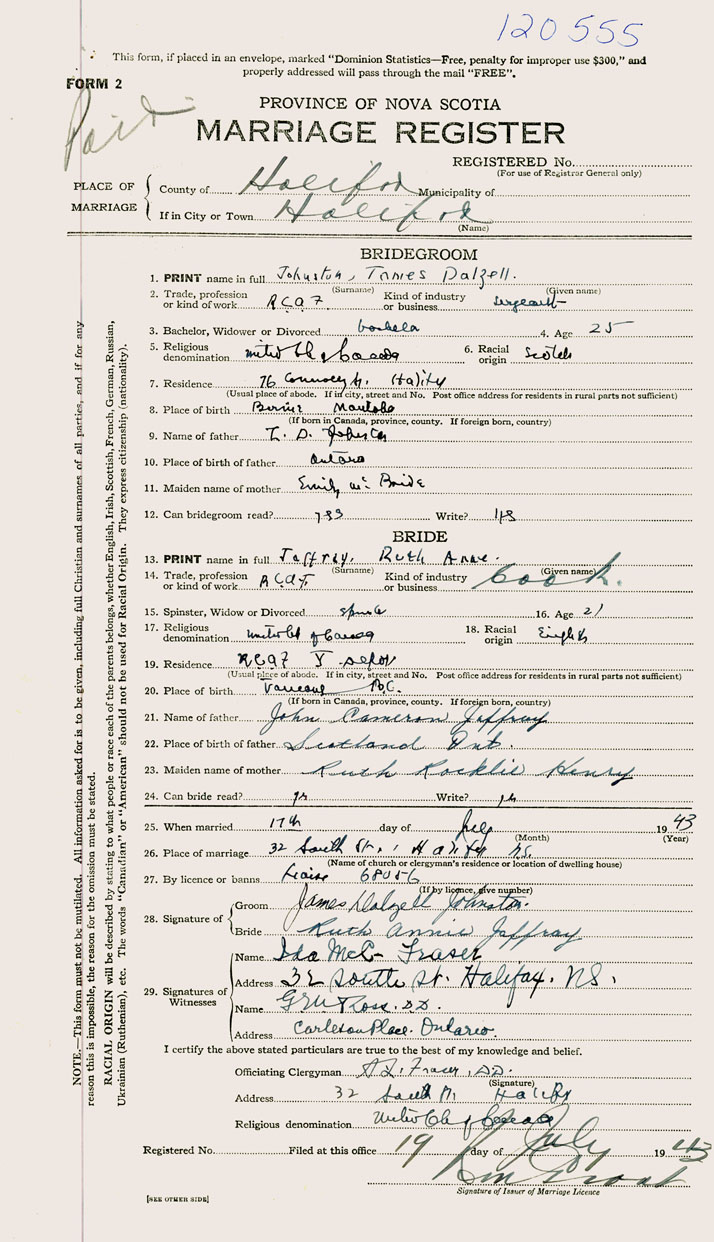 120555
This form, if placed in an envelope, marked "Dominion Statistics—Free, penalty for improper use $300," and
properly addressed will pass through the mail "FREE".
FORM 2
Paid
PROVINCE OF NOVA SCOTIA
MARRIAGE REGISTER
REGISTERED No.
(For use of Registrar General only)
PLACE OF MARRIAGE
County of Halifax Municipality of
If in City or Town Halifax
(Name)
BRIDEGROOM
1. PRINT name in full Johnston, James Dalzell.
(Surname) (Given name)
2. Trade, profession or kind of work RCAF Kind of industry or business Sergeant
3. Bachelor, Widower or Divorced 4. Age 25
5. Religious denomination United Ch of Canada 6. Racial origin Scotch
7. Residence 76 St. Halifax
(Usual place of abode. If in city, street and No. Post office address for residents in rural parts not sufficient)
8. Place of birth Manitoba
(If born in Canada, province, county. If foreign born, country)
9. Name of father D. Johnston
10. Place of birth of father Ontario
11. Maiden name of mother Emily Mc Bride
12. Can bridegroom read? yes Write? yes
BRIDE
13. PRINT name in full Jaffray, Ruth Anne.
(Surname) (Given name)
14. Trade, profession or kind of work RCAF Kind of industry or business Cook.
15. Spinster, Widow or Divorced 16. Age 21
17. Religious denomination United Ch of Canada 18. Racial origin English
19. Residence RCAF Y Depot
(Usual place of abode. If in city, street and No. Post office address for residents in rural parts not sufficient)
20. Place of birth Vancouver B.C.
(If born in Canada, province, county. If foreign born, country)
21. Name of father John Cameron Jaffray
22. Place of birth of father Scotland Ont.
23. Maiden name of mother Ruth Rocklie Henry
24. Can bride read? yes Write? yes
25. When married 17th day of July 1943
(Month) (Year)
26. Place of marriage 32 South St., Halifax N.S.
(Name of church or clergyman's residence or location of dwelling house)
27. By licence or banns License 68056
(If by licence, give number)
28. Signature of
Groom James Dalzell Johnston.
Bride Ruth Annie Jaffray
29. Signatures of Witnesses
Name Ida McC Fraser
Address 32 South St. Halifax. N.S.
Name Ross. D.D.
Address Carleton Place. Ontario.
I certify the above stated particulars are true to the best of my knowledge and belief.
Officiating Clergyman Fraser, D.D.
(Signature)
Address 32 South St. Halifax
Religious denomination United Ch of Canada
Registered No. Filed at this office 19 day of July 1943
Signature of Issuer of Marriage Licence
[SEE OTHER SIDE]
NOTE.—This form must not be mutilated. All information asked for is to be given, including full Christian and surnames of all parties, and if for any
reason this is impossible, the reason for the omission must be stated.
RACIAL ORIGIN will be described by stating to what people or race each of the parents belongs, whether English, Irish, Scottish, French, German, Russian,
Ukrainian (Ruthenian), etc. The words "Canadian" or "American" should not be used for Racial Origin. They express citizenship (nationality).